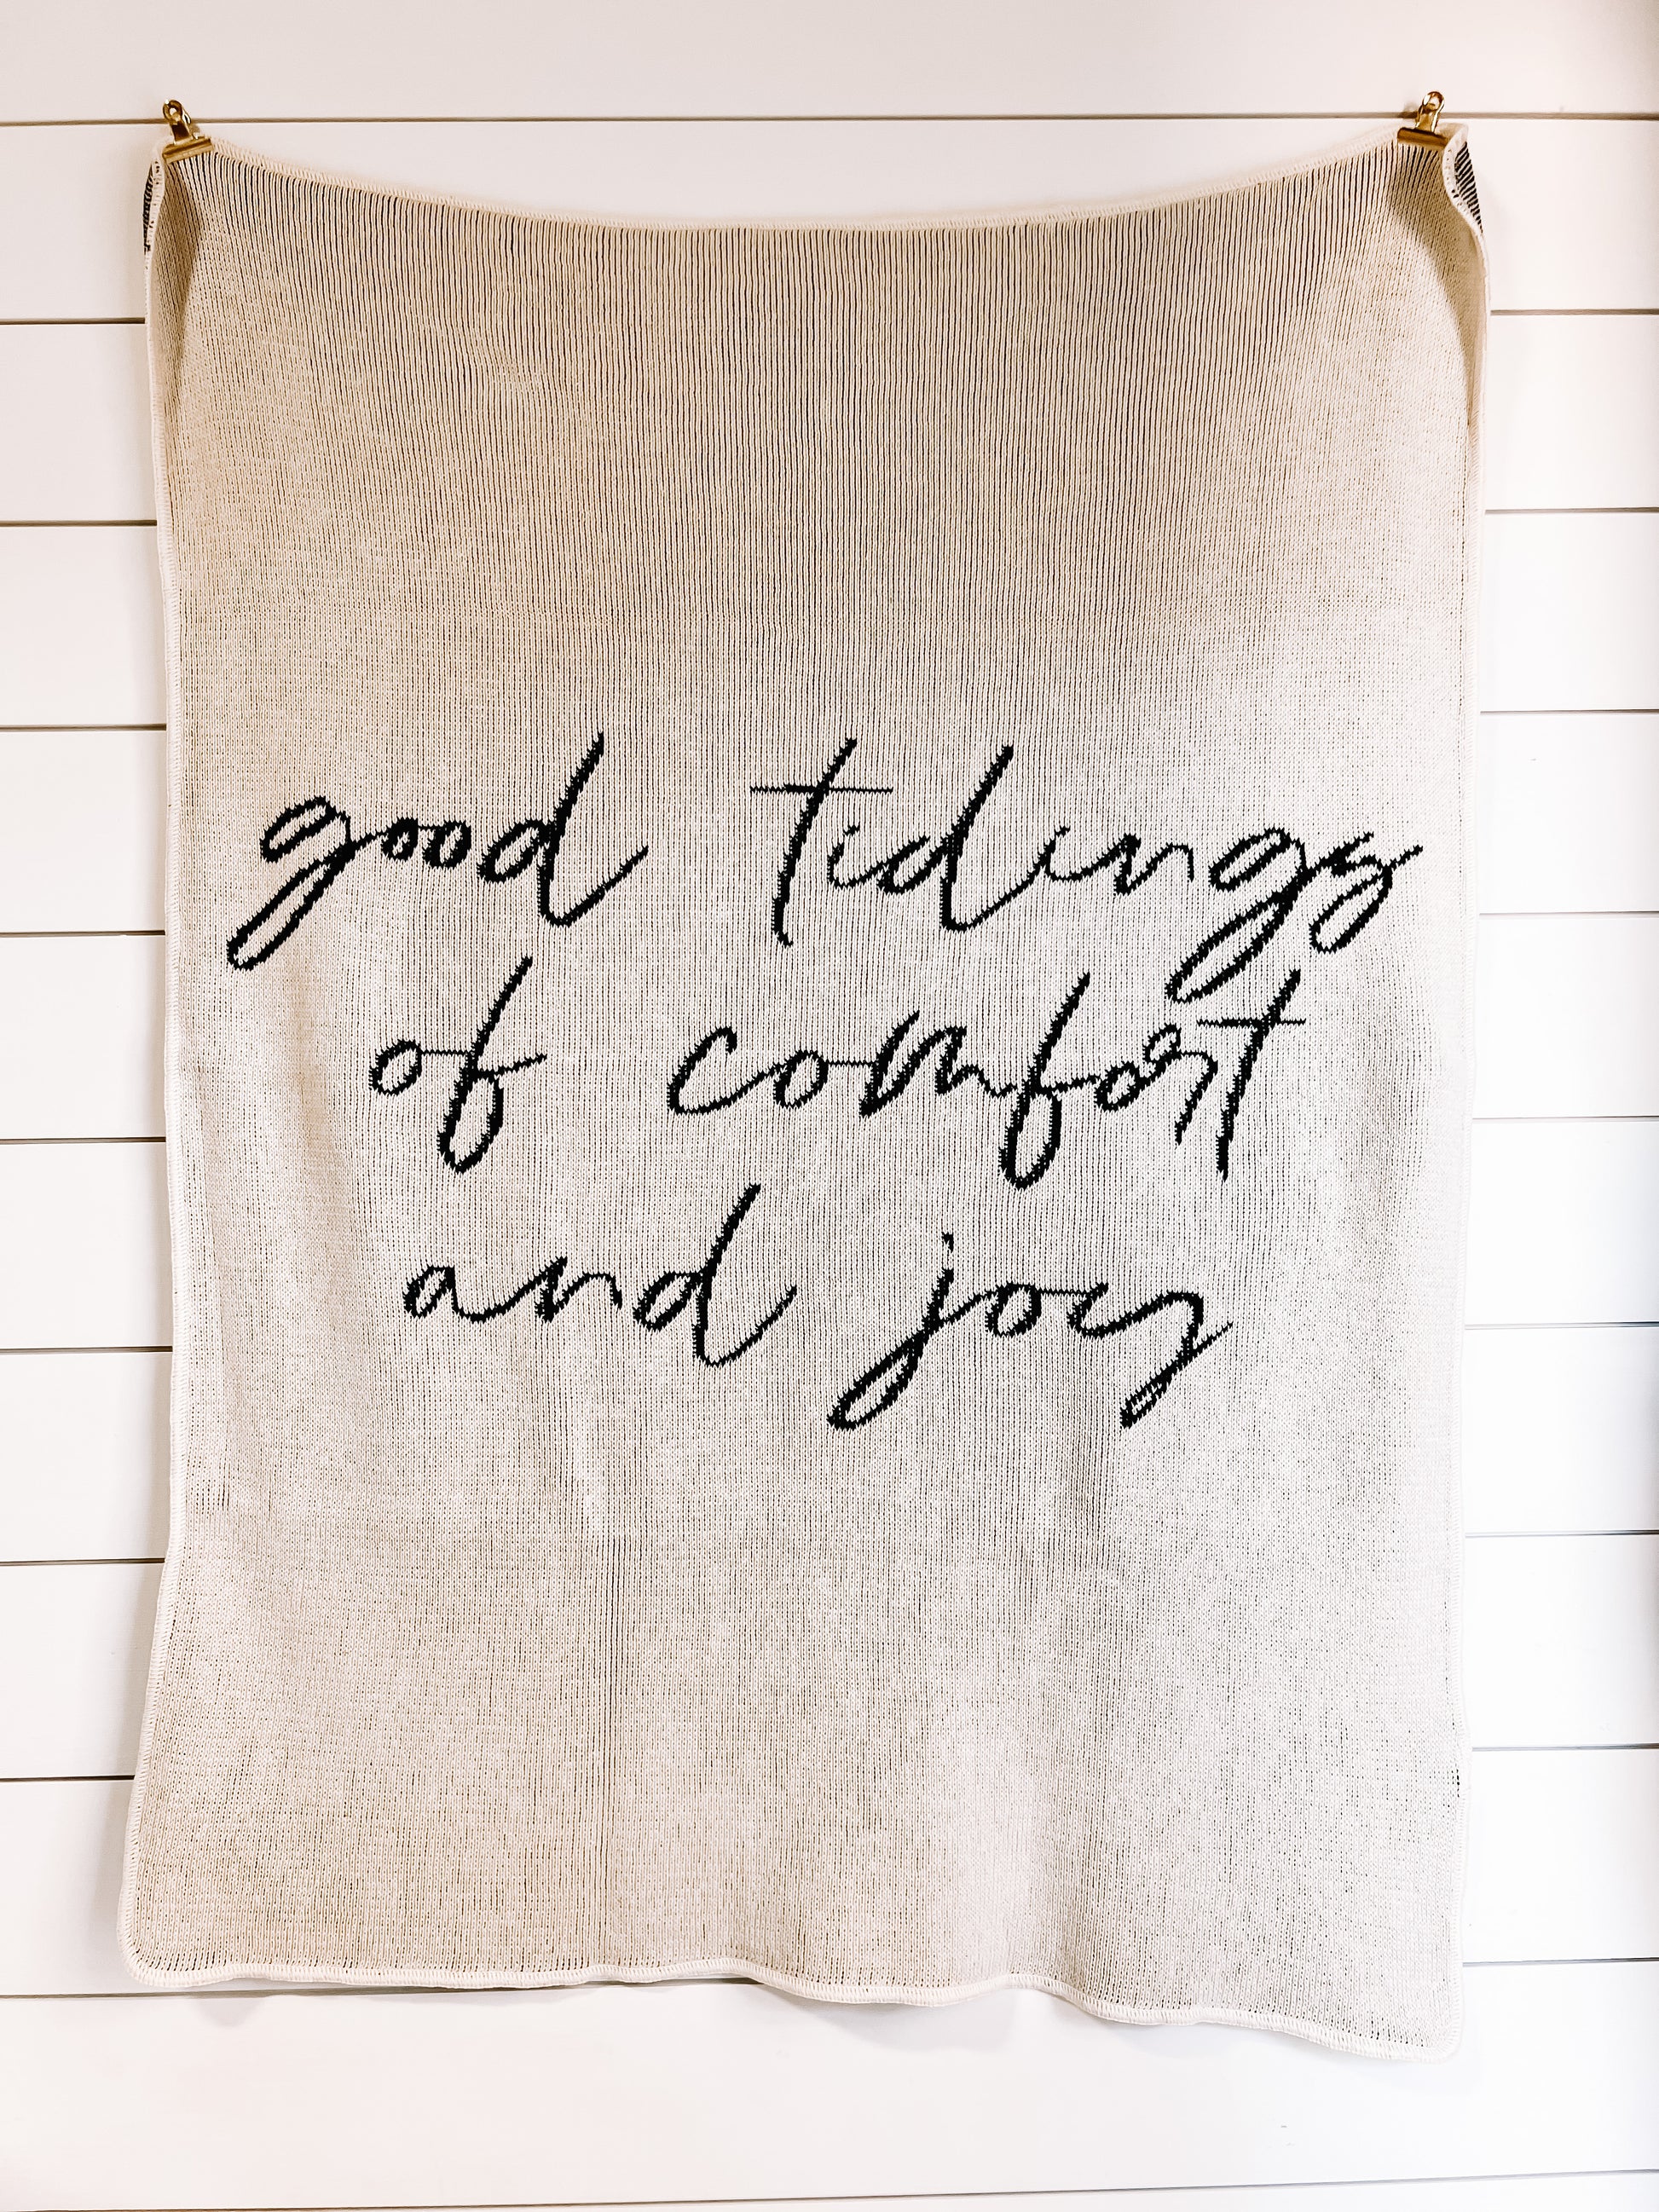 good tidings
of comfort
and joy